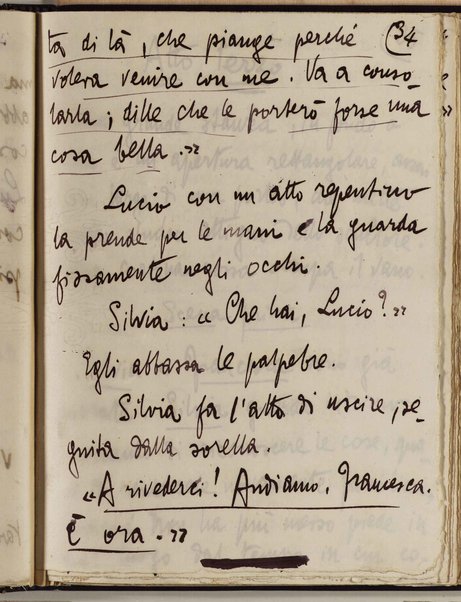 ta di là, che piange perché 34
voleva venire con me. Va a conso
larla; dille che le porterò forse una
cosa bella."
Lucio con un atto repentino
la prende per le mani e la guarda
fissamente negli occhi.
Silvia: « Che hai, Lucio? »
Egli abbassa le palpebre.
Silvia fa l'atto di uscire, se-
guita dalla sorella.
« A rivederci! Andiamo, Francesca.
È ora. »